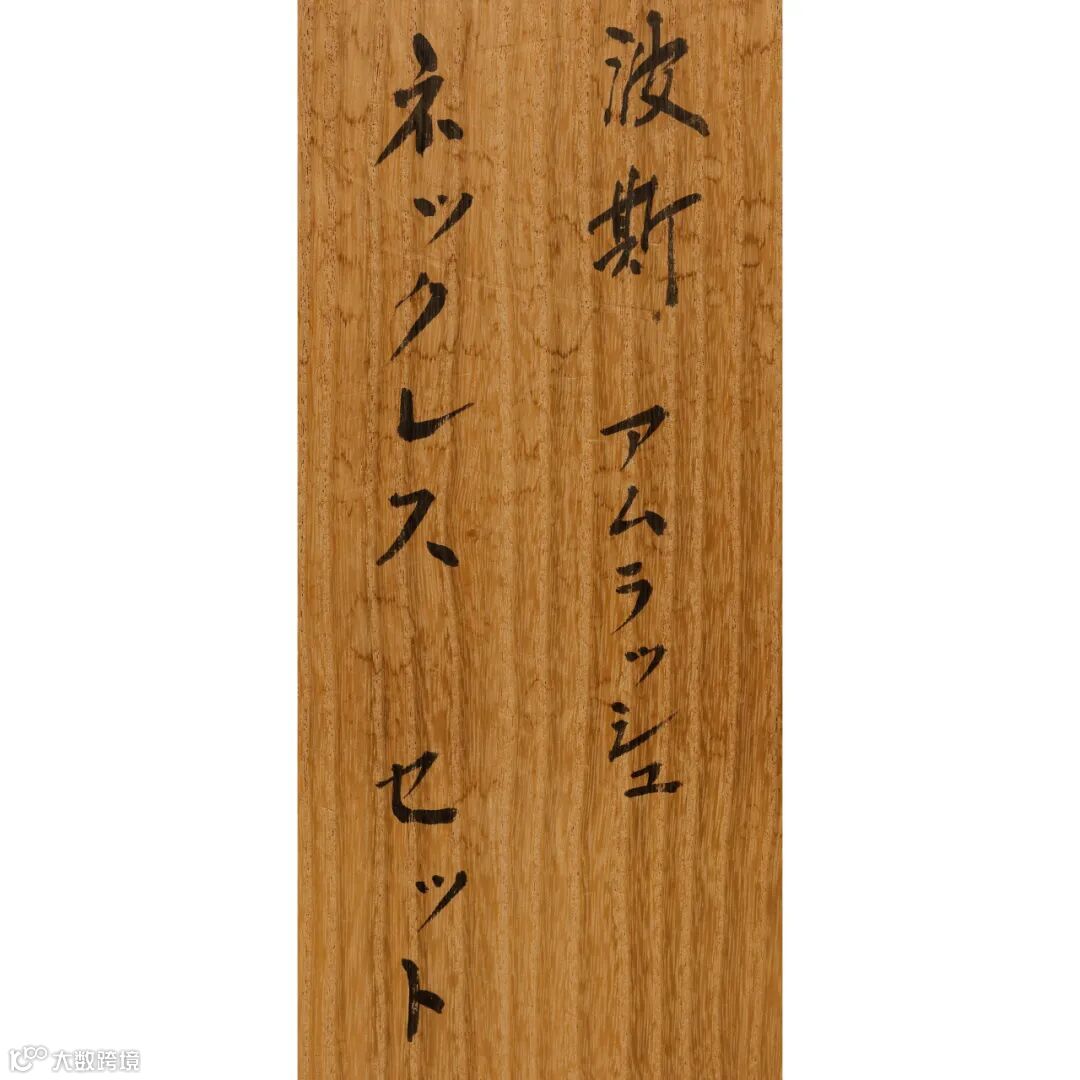 波斯 アムラッシュ
ネックレス セット
大数跨境